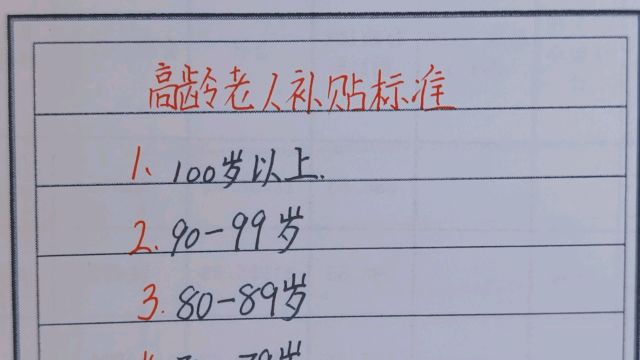 高龄老人补贴标准
1、100岁以上.
2.90-99岁
3.80-89岁